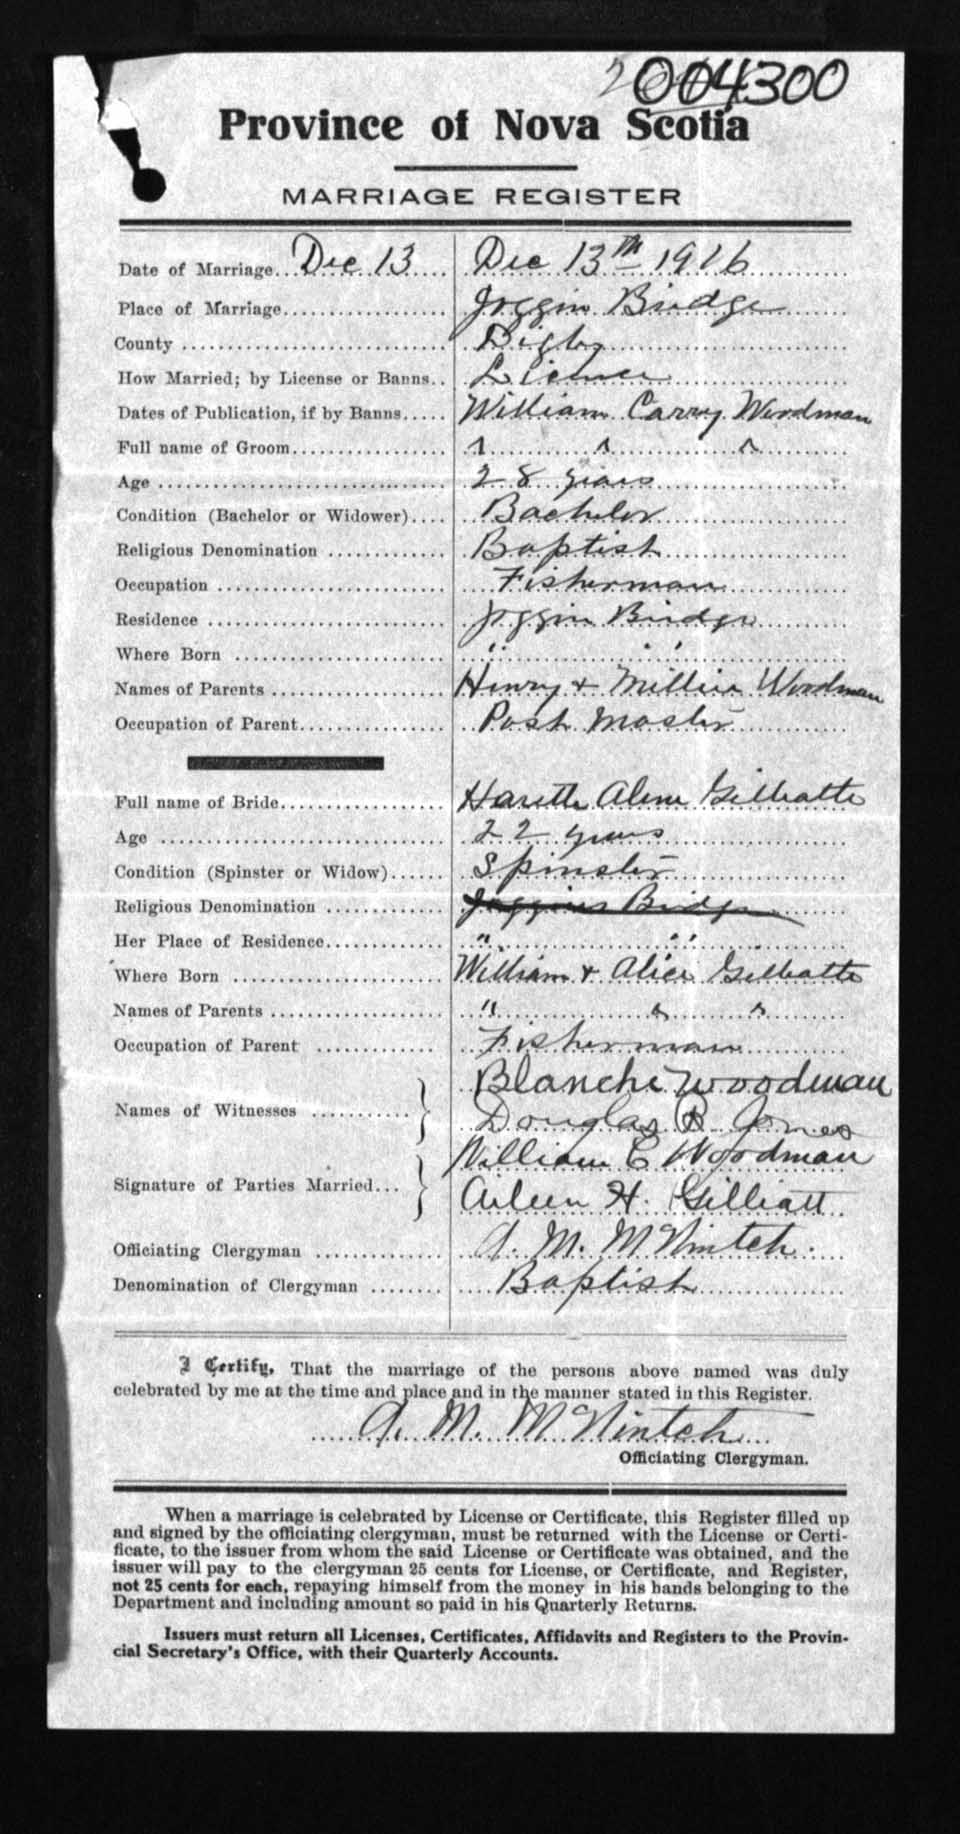 004300
Province of Nova Scotia
MARRIAGE REGISTER
Date of Marriage... Dec 13 Dec 13th 1916
Place of Marriage Joggin Bridge
County Digby
How Married; by License or Banns.. Licence
Dates of Publication, if by Banns William Carry Woodman
Full name of Groom " " "
Age 28 years
Condition (Bachelor or Widower) Bachelor
Religious Denomination Baptist
Occupation Fisherman
Residence Joggin Bridge
Where Born " " "
Names of Parents Henry + Millie Woodman
Occupation of Parent Post Master
Full name of Bride Alene
Age 22 years
Condition (Spinster or Widow) Spinster
Religious Denomination Joggins Bridge
Her Place of Residence " "
Where Born William + Alice
Names of Parents " " "
Occupation of Parent Fisherman
Names of Witnesses Blanche Woodman
Douglas R Jones
Signature of Parties Married... William C Woodman
Aileen H. Gilliatt
Officiating Clergyman A. M. McNintch.
Denomination of Clergyman Baptist
I Certify, That the marriage of the persons above named was duly
celebrated by me at the time and place and in the manner stated in this Register.
A. M. McNintch
Officiating Clergyman.
When a marriage is celebrated by License or Certificate, this Register filled up
and signed by the officiating clergyman, must be returned with the License or Certi-
ficate, to the issuer from whom the said License or Certificate was obtained, and the
issuer will pay to the clergyman 25 cents for License, or Certificate, and Register,
not 25 cents for each, repaying himself from the money in his hands belonging to the
Department and including amount so paid in his Quarterly Returns.
Issuers must return all Licenses, Certificates, Affidavits and Registers to the Provin-
cial Secretary's Office, with their Quarterly Accounts.